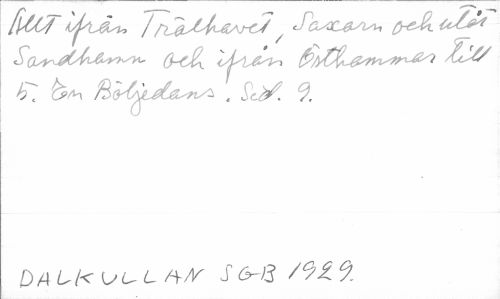 Allt ifrån Trälhavet, Saxarn och utåt
Sandhamn och ifrån Östhammar till
5. En Böljedans. Sid. 9.
DALKULLAN SGB 1929.